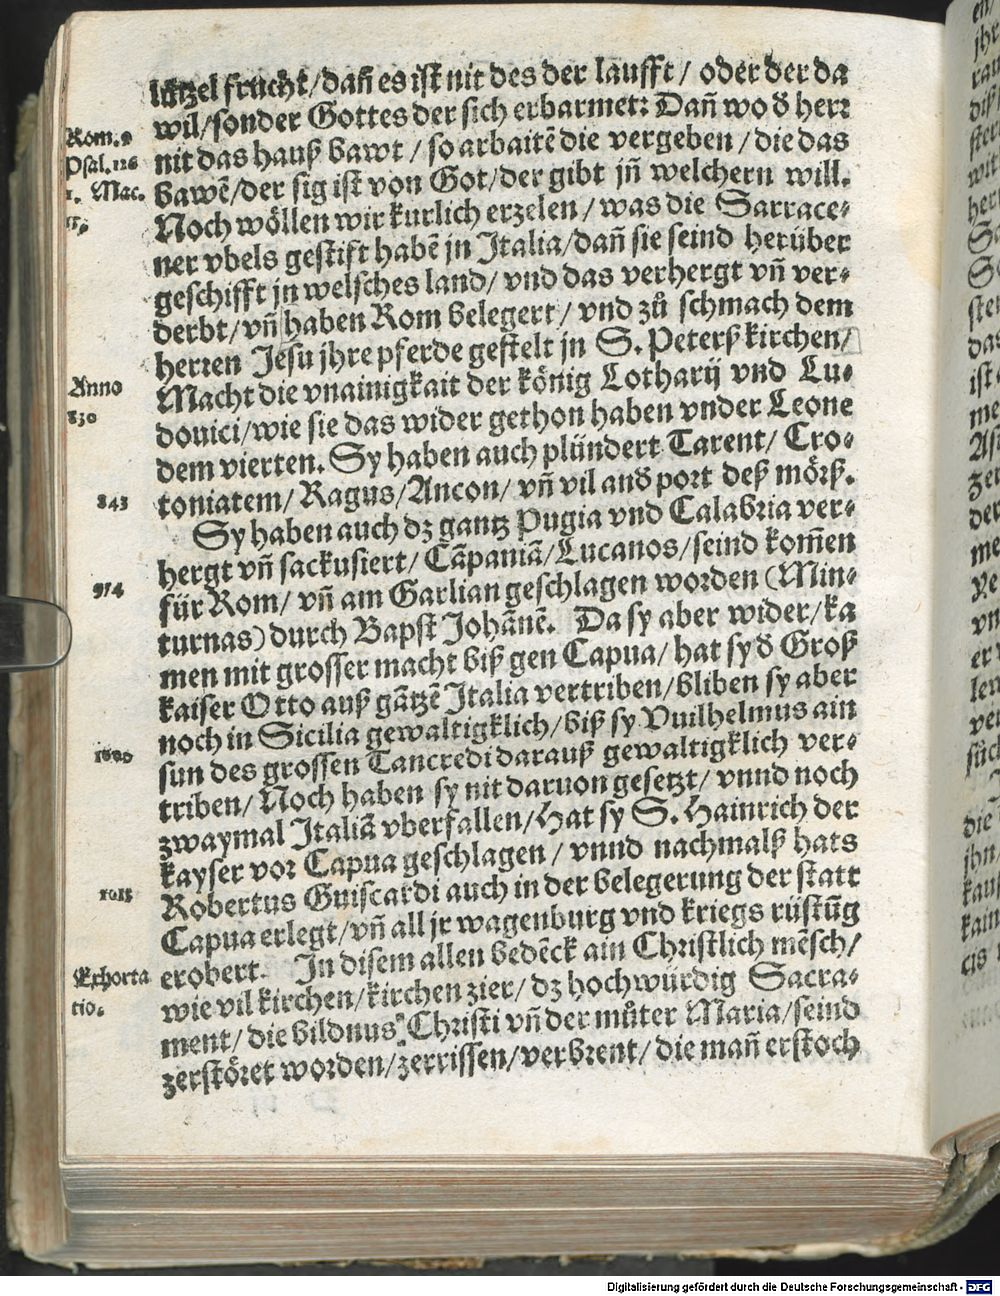 lützel frucht/dañ es ist nit des der laufft/ oder der da
wil/sonder Gottes der sich erbarmet: Dañ wo ð herr
nit das hauß bawt/ so arbaitē die vergeben/ die das
bawē/der sig ist von Got/der gibt jñ welchern will.
Noch wöllen wir kurlich erzelen/ was die Sarrace-
ner vbels gestift habē jn Italia/dañ sie seind herüber
geschifft jn welsches land/ vnd das verhergt vñ ver-
derbt/vñ haben Rom belegert/ vnd zů schmach dem
herren Jesu jhre pferde gestelt jn S. Peterß kirchen/
Macht die vnainigkait der könig Lotharij vnd Lu-
douici/wie sie das wider gethon haben vnder Leone
dem vierten. Sy haben auch plündert Tarent/ Cro-
toniatem/ Ragus/Ancon/ vñ vil and port deß mörß.
Sy haben auch dz gantz Pugia vnd Calabria ver-
hergt vñ sackusiert/ Cāpaniā/Lucanos/seind kom̄en
für Rom/ vñ am Garlian geschlagen worden (Min-
turnas) durch Bapst Johānē. Da sy aber wider/ka
men mit grosser macht biß gen Capua/ hat sy ð Groß
kaiser Otto auß gātzē Italia vertriben/bliben sy aber
noch in Sicilia gewaltigklich/biß sy Vuilhelmus ain
sun des grossen Tancredi darauß gewaltigklich ver-
triben/ Noch haben sy nit daruon gesetzt/ vnnd noch
zwaymal Italiā vberfallen/Hat sy S. Hainrich der
kayser vor Capua geschlagen/ vnnd nachmalß hats
Robertus Guiscardi auch in der belegerung der statt
Capua erlegt/vñ all jr wagenburg vnd kriegs rüstūg
erobert. In disem allen bedēck ain Christlich mēsch/
wie vil kirchen/kirchen zier/ dz hochwürdig Sacra-
ment/ die bildnus Christi vñ der můter Maria/seind
zerstöret worden/zerrissen/verbrent/ die mañ erstoch
Rom. 9
Psal. 126
1. Mac.
Anno
830
843
914
1000
Exhorta
tio.
Digitalisierung gefördert durch die Deutsche Forschungsgemeinschaft - DFG